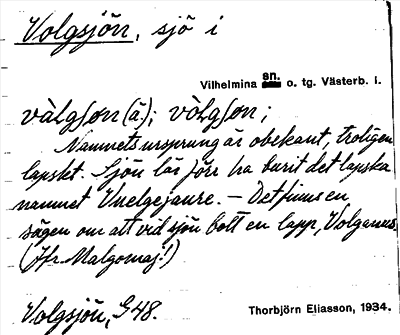 Volgsjön, sjö i
Vilhelmina sn. o. tg. Västerb. l.
vàlgʃøn (ä.); vòlgʃøn;
Namnets ursprung är obekant, troligen
lapskt. Sjön lär förr ha burit det lapska
namnet Vuelgejaure. – Det finns en
sägen om att vid sjön bott en lapp, Volganus.
(Jfr Malgomaj!)
Volgsjön, G 48.
Thorbjörn Eliasson, 1934.